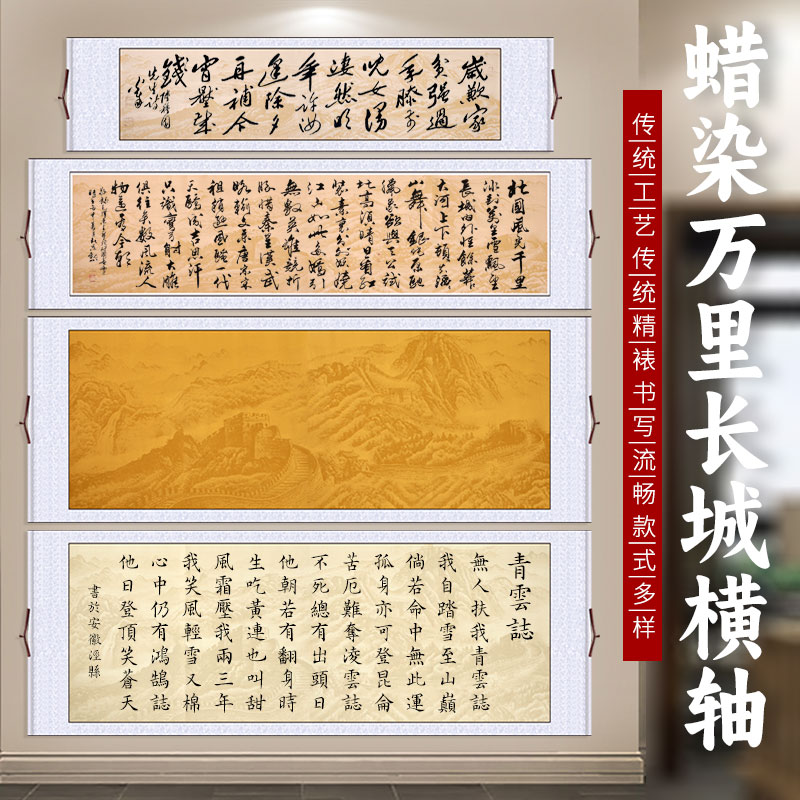 蜡染万里长城横轴
传统工艺 传统精裱 书写流畅 款式多样
歲歉家
貧强過
年膝前
兒女漫
凄然明
年許汝
逢除夕
再補今
宵壓歲
錢
北國風光千里
冰封萬里雪飄望
長城内外惟餘莽
大河上下頓失滔
山舞銀蛇原馳
蠟象欲與天公試
比高須晴日看紅
裝素裹分外妖嬈
江山如此多嬌引
無數英雄競折
腰惜秦皇漢武
略輸文采唐宗宋
祖稍遜風騷一代
天驕成吉思汗
只識彎弓射大雕
俱往矣數風流人
物還看今朝
青雲誌
無人扶我青雲誌
我自踏雪至山巔
倘若命中無此運
孤身亦可登昆侖
苦厄難奪凌雲誌
不死總有出頭日
他朝若有翻身時
生吃黃連也叫甜
風霜壓我兩三年
我笑風輕雪又棉
心中仍有鴻鵠誌
他日登頂笑蒼天
書於安徽涇縣